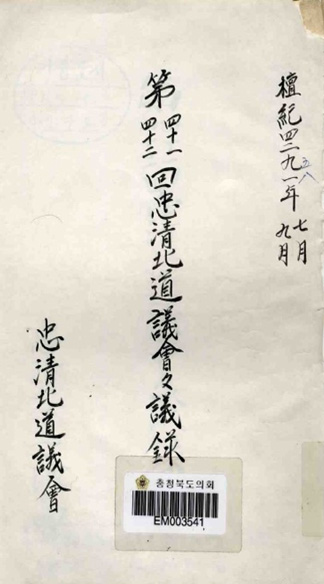 檀紀四二九一年 七月 九月
五八
第 四十一 四十二 回忠清北道議會々議錄
忠清北道議會
충청북도의회
EM003541